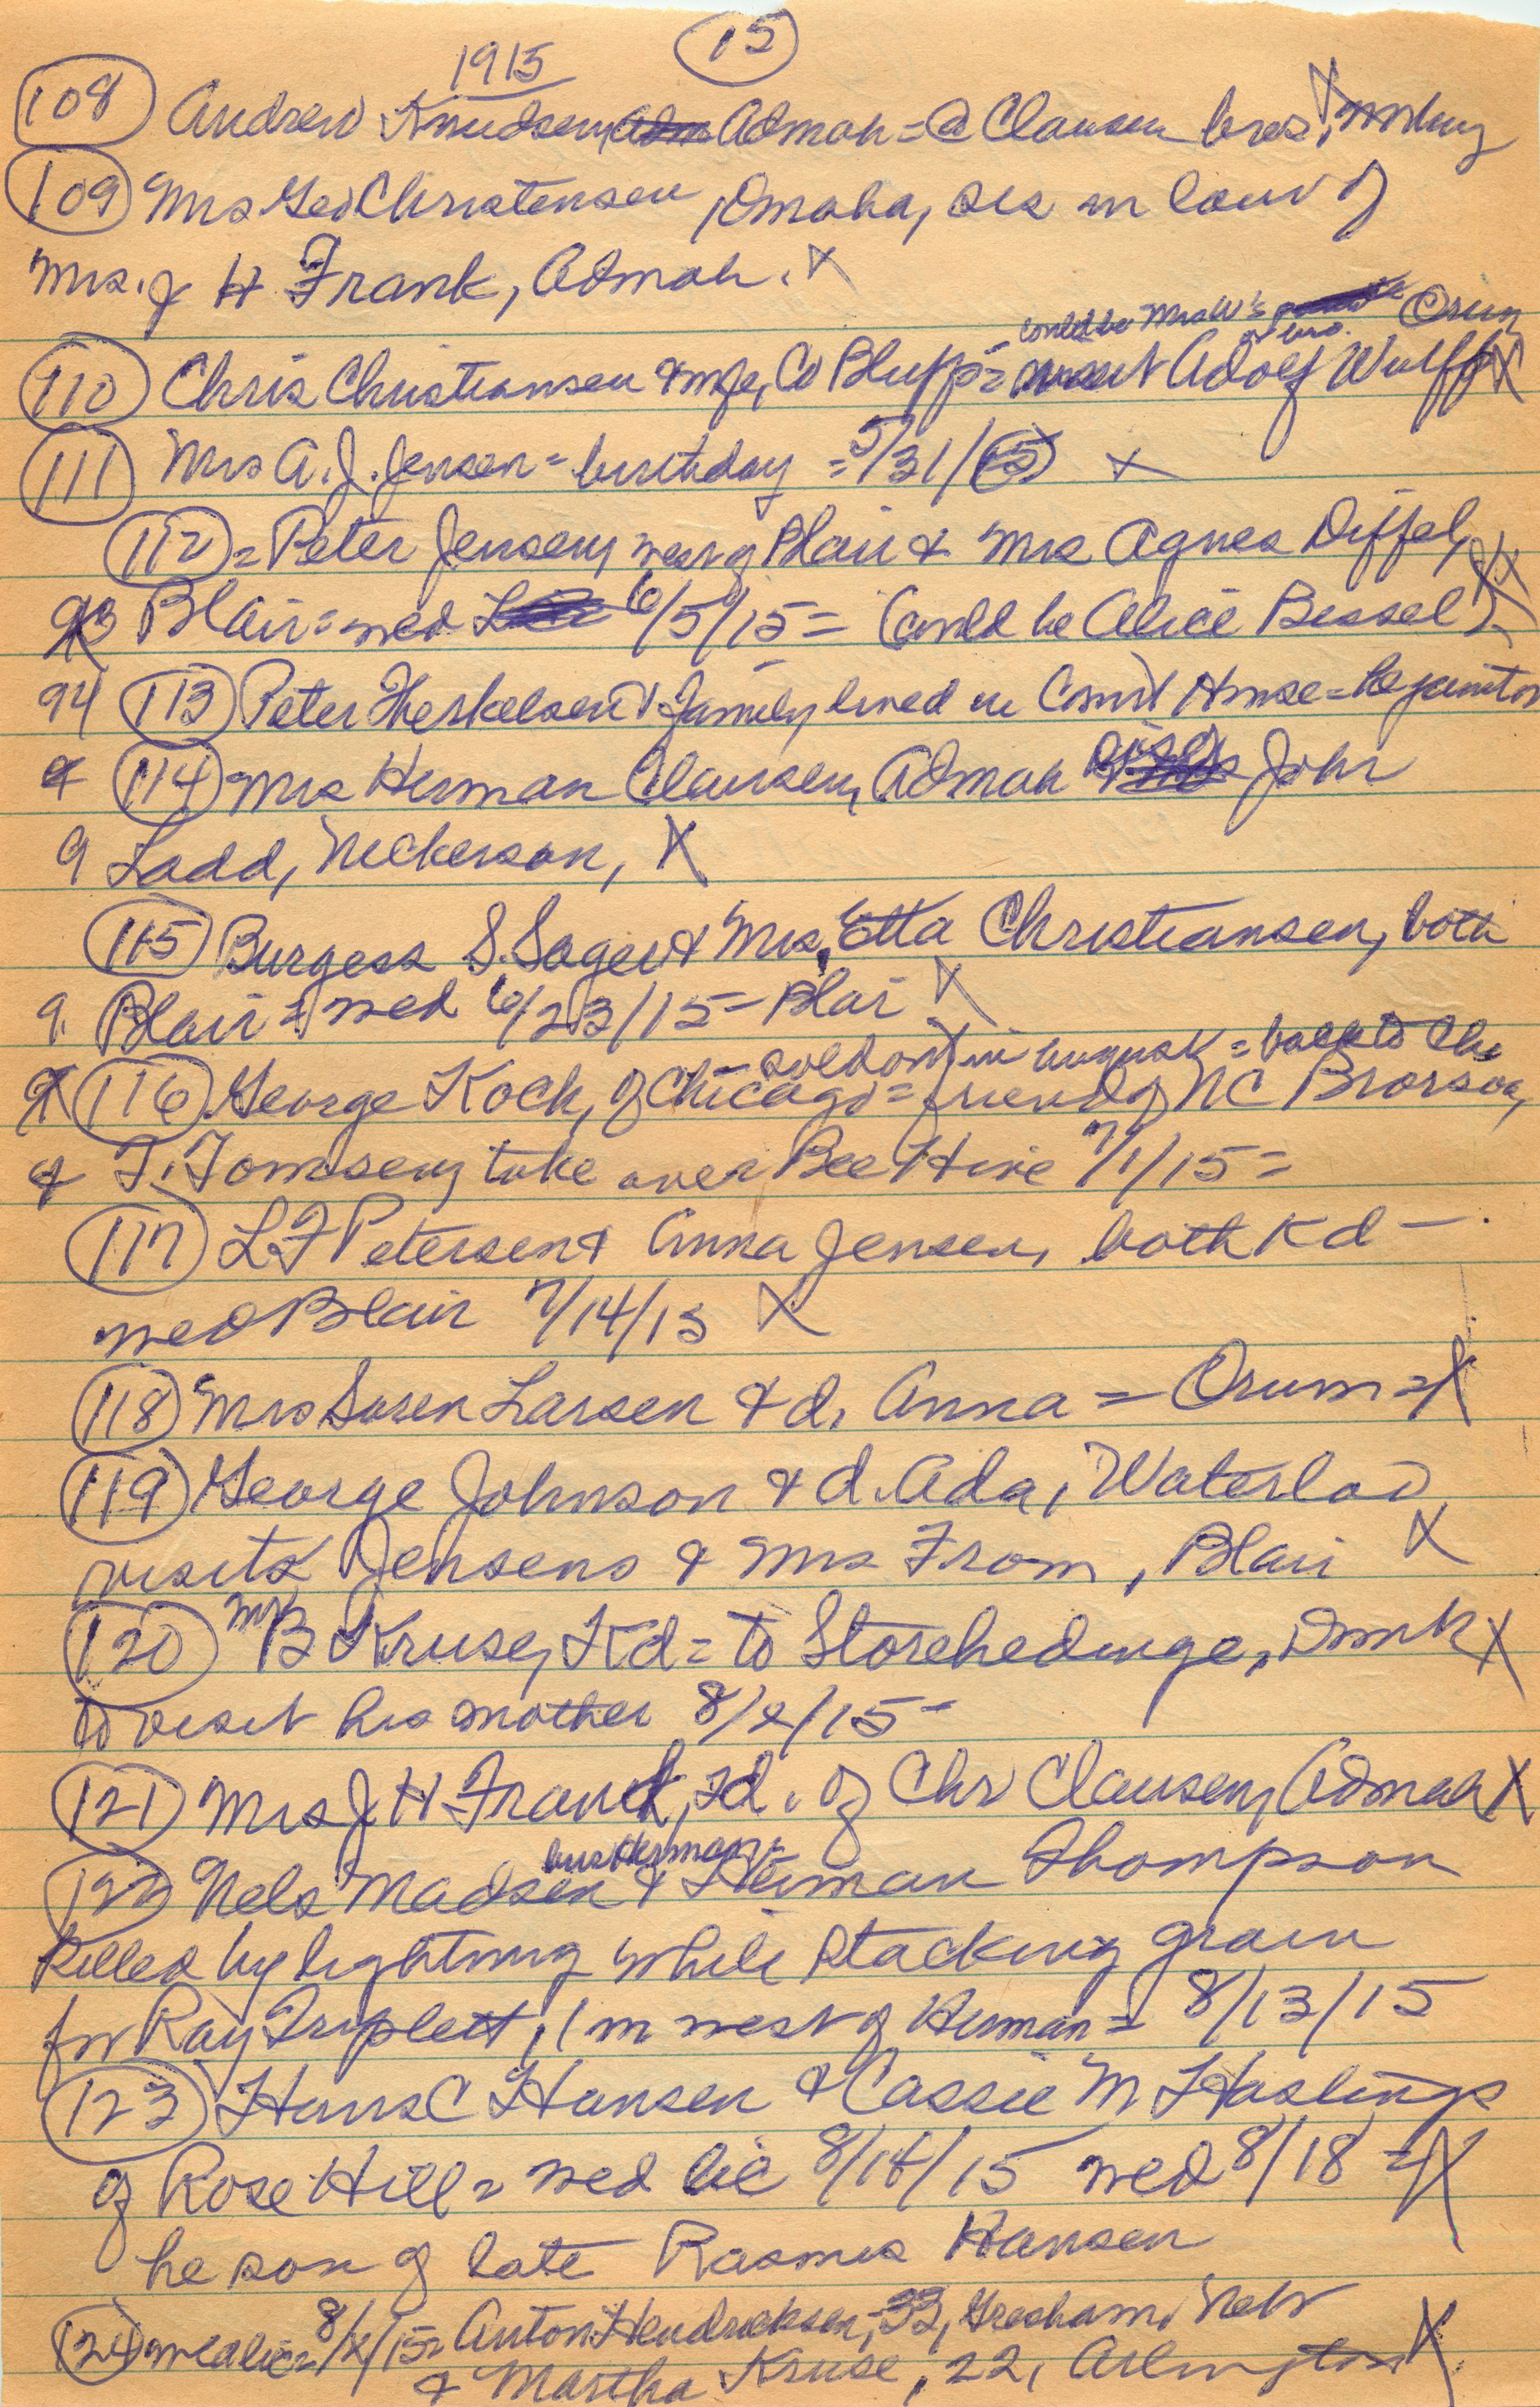 1915 (15)
(108) Andrew Knudsen, Admah = @ Clausen bros,
(109) Mrs Geo Christensen, Omaha, sis in law of
Mrs. J H Frank, Admah. X
could be Mrs W's or bro. Orum
(110) Chris Christiansen & wife, Co Bluffs = visit Adolf Wulff X
(111) Mrs A. J. Jensen = birthday = 5/31/15 X
(112) = Peter Jensen, west of Blair & Mrs Agnes Diffel,
93 Blair = wed 6/5/15 = (could be Alice Bissel) X
94 (113) Peter Therkelsen & family lived in Court House = he janitor
(114) Mrs Herman Clausen, Admah John
9 Ladd, Nickerson, X
(115) Burgess S. Sager & Mrs. Etta Christiansen, both
9. Blair = wed 6/23/15 = Blai X
sold out in August = back to Chi
(116) George Koch, of Chicago = friend of NC Brorson,
& T. Tomsen, take over Bee Hive 7/1/15 =
(117) L F Petersen & Anna Jensen, both Kd -
wed Blair 7/14/15 X
(118) Mrs Soren Larsen & d. Anna = Orum = X
(119) George Johnson & d. Ada, Waterloo
visits Jensens & Mrs From, Blair X
(120) Mr B Kruse, Kd = to Storehedinge, Dmk X
to visit his mother 8/2/15 -
(121) Mrs J H Frank, d. of Chr Clausen, Admah X
(122) Nels Madsen & Herman Thompson
killed by lightning while stacking grain
for Ray Triplett, 1 m west of Herman = 8/13/15
(123) Hans C Hansen & Cassie M Hastings
of Rose Hill = wed lic 8/14/15 wed 8/18 = X
he son of late Rasmus Hansen
(124) wed lic = 8/ /15 = Anton Hendricksen, 33, Gresham, Nebr
& Martha Kruse, 22, Arlington X